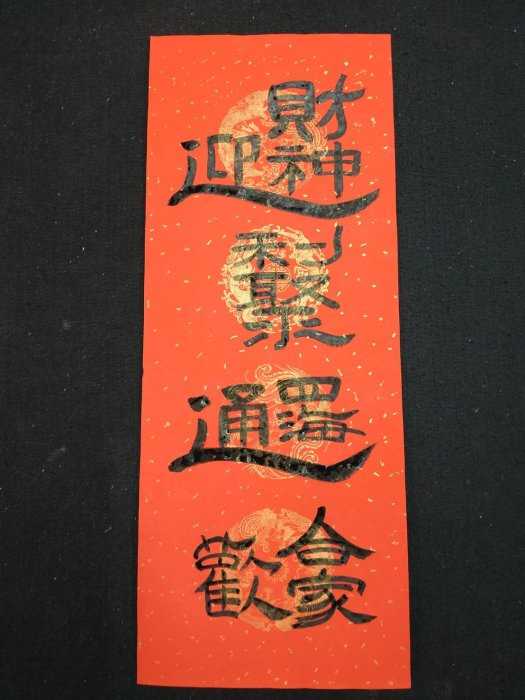 迎財神
利聚
通四海
合家歡